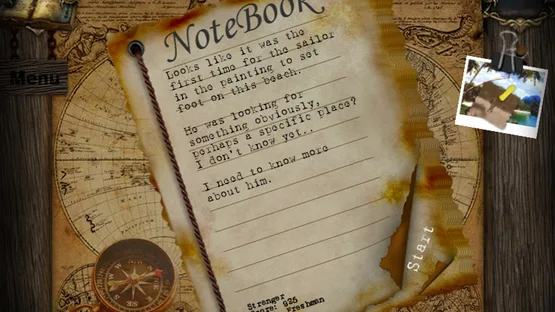 Menu
NoteBook
Looks like it was the
first time for the sailor
in the painting to set
foot on this beach.
He was looking for
something obviously,
perhaps a specific place?
I don't know yet..
I need to know more
about him.
Start
Stranger
Score: 925
Freshman